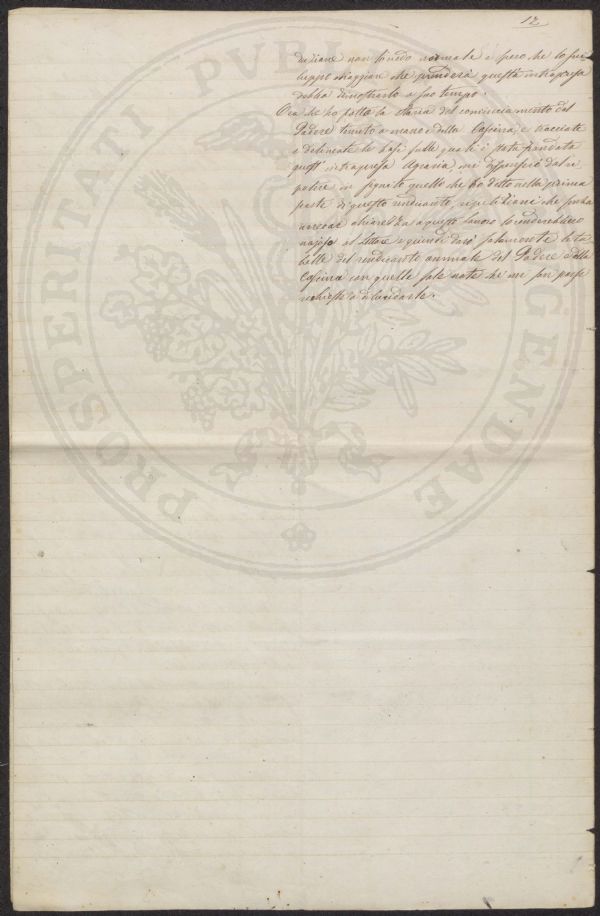 12
dizione non credo normale e spero che lo svi
luppo maggiore che prenderà questa intrapresa
debba dimostrarlo a suo tempo.
Ora che ho fatto la storia del cominciamento del
Podere tenuto a mano e della Cascina, e tracciate
e delineate le basi sulle quali è stata fondata
quest'intrapresa Agraria, mi dispenserò dal ri
petere in seguito quello che ho detto nella prima
parte di questo rendiconto, ripetizioni che senza
arrecar chiarezza a questo lavoro lo renderebbero
nojoso al lettore e quindi darò solamente le ta
belle del rendiconto annuale del Podere e della
Cascina con quelle sole note che mi son parse
richieste a dilucidarle.
PROSPERITATI PVBLICAE AVGENDAE